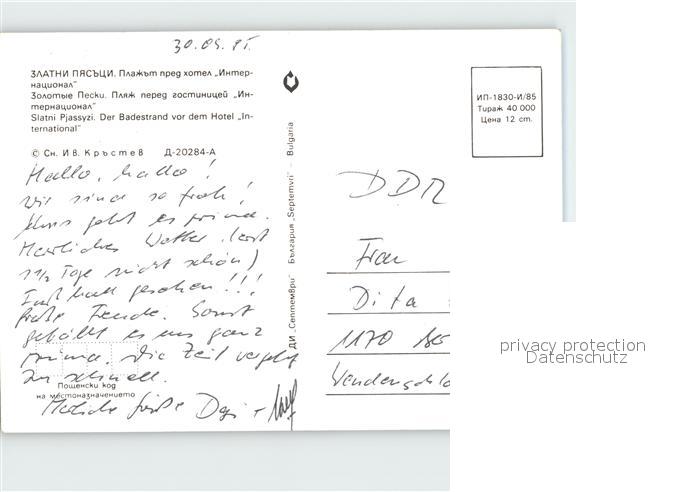 30.09.85.
ЗЛАТНИ ПЯСЪЦИ. Плажът пред хотел „Интер-
национал“
Золотые Пески. Пляж перед гостиницей „Ин-
тернационал“
Slatni Pjassyzi. Der Badestrand vor dem Hotel „In-
ternational“
© Сн. Ив. Кръстев Д-20284-А
Hallo, hallo!
Wir sind so froh!
Uns geht es prima.
Herrliches Wetter (erst
1 1/2 Tage nicht schön)
Fußball gesehen!!!
große Freude. Sonst
gefällt es uns ganz
prima. Die Zeit vergeht
zu schnell.
Пощенски код
на местоназначението
Grüße
ДИ „Септември“ България „Septemvri“ - Bulgaria
ИП-1830-И/85
Тираж 40 000
Цена 12 ст.
DDR
Frau
Dita
1170
privacy protection
Datenschutz